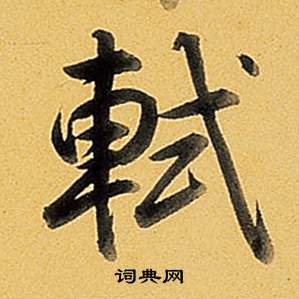 軾
词典网